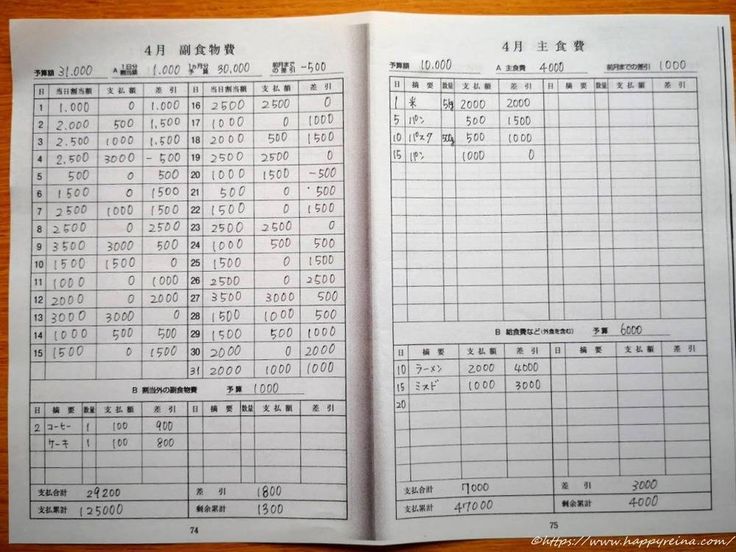 4月 副食物費
予算額 31.000 A 1日分割当額 1.000 1ヵ月分予算 30,000 前月までの差引 -500
日 当日割当額 支払額 差引 日 当日割当額 支払額 差引
1 1.000 0 1.000 16 2500 2500 0
2 2.000 500 1,500 17 1000 0 1000
3 2.500 1000 1.500 18 2000 500 1500
4 2.500 3000 -500 19 2500 2500 0
5 500 0 500 20 1000 1500 -500
6 1500 0 1500 21 500 0 500
7 2500 1000 1500 22 1500 0 1500
8 2500 0 2500 23 2500 2500 0
9 3500 3000 500 24 1000 500 500
10 1500 1500 0 25 1500 0 1500
11 1000 0 1000 26 2500 0 2500
12 2000 0 2000 27 3500 3000 500
13 3000 3000 0 28 1500 1000 500
14 1000 500 500 29 1500 500 1000
15 1500 0 1500 30 2000 0 2000
31 2000 1000 1000
B 割当外の副食物費 予算 1000
日 摘要 数量 支払額 差引 日 摘要 数量 支払額 差引
2 コーヒー 1 100 900
ケーキ 1 100 800
支払合計 29200 差引 1800
支払累計 125000 剰余累計 1300
74
4月 主食費
予算額 10.000 A 主食費 4000 前月までの差引 1000
日 摘要 数量 支払額 差引 日 摘要 数量 支払額 差引
1 米 5kg 2000 2000
5 パン 500 1500
10 パスタ 500g 500 1000
15 パン 1000 0
B 給食費など(外食を含む) 予算 6000
日 摘要 支払額 差引 日 摘要 支払額 差引
10 ラーメン 2000 4000
15 ミスド 1000 3000
20
支払合計 7000 差引 3000
支払累計 47000 剰余累計 4000
75
©https://www.happyreina.com/